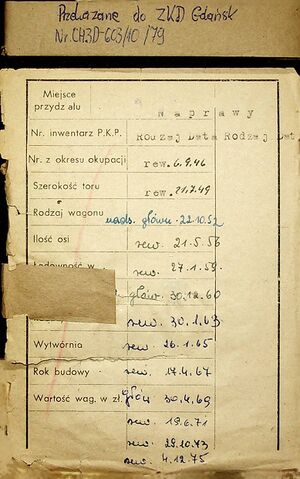 Przekazane do ZKD Gdańsk
Nr. CH3D-603/40/79
Miejsce
przydziału
Naprawy
Nr. inwentarz P.K.P. Rodzaj Data Rodzaj Dat
Nr. z okresu okupacji rew. 6.9.46
Szerokość toru rew. 21.7.49
Rodzaj wagonu nads. główn. 22.10.52
Ilość osi rew. 21.5.56
Ładowność w rew. 27.1.59.
główn. 30.12.60
rew. 30.1.63
Wytwórnia rew. 26.1.65
Rok budowy rew. 17.4.67
Wartość wag. w zł. głów 30.4.69
rew. 19.6.71
rew. 29.10.73
rew. 4.12.75